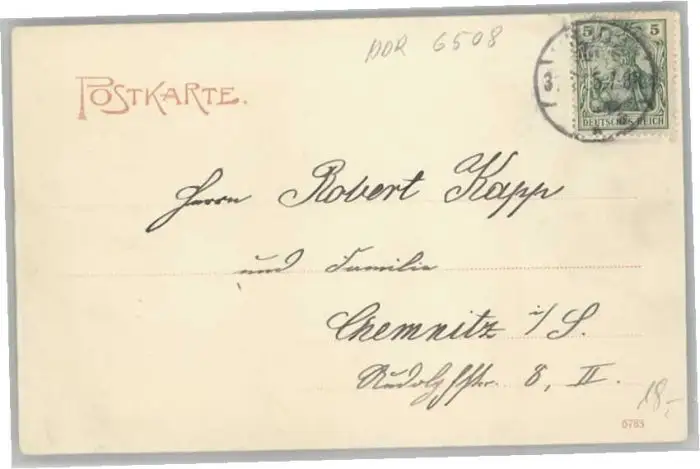 DDR 6508
5 5
DEUTSCHES REICH
POSTKARTE.
Herrn Robert Kapp
und Familie
Chemnitz i/S.
Rudolfstr. 8, II.
18,-
0783